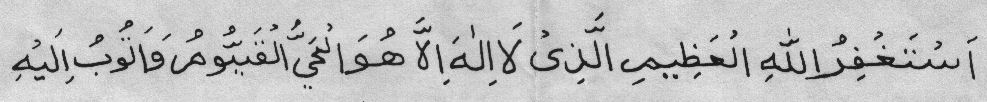 اَسْتَغْفِرُ اللّٰهِ الْعَظِيمِ الَّذِىْ لَا اِلٰهَ اِلَّا هُوَ الْحَيُّ الْقَيُّومُ وَاَتُوبُ اِلَيْهِ